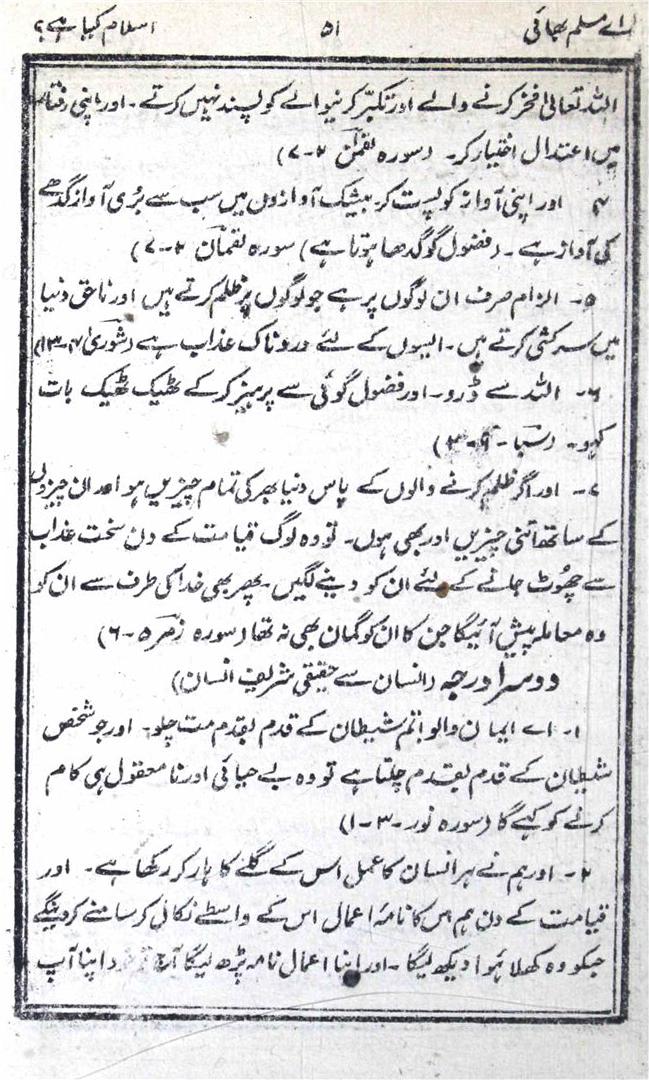 اے مسلم بھائی ۵۱ اسلام کیا ہے؟
اللہ تعالیٰ فخر کرنے والے اور تکبّر کرنیوالے کو پسند نہیں کرتے ۔ اور اپنی رفتار
میں اعتدال اختیار کر ۔ (سورہ لقمٰن ۲-۷)
۴ اور اپنی آواز کو پست کر بیشک آوازوں میں سب سے بُری آواز گدھے
کی آواز ہے ۔ (فضول گو گدھا ہوتا ہے) سورہ لقمان ۲-۷)
۵- الزام صرف ان لوگوں پر ہے جو لوگوں پر ظلم کرتے ہیں اور ناحق دنیا
میں سرکشی کرتے ہیں ۔ ایسوں کے لئے دردناک عذاب ہے (شوریٰ ۴-۱۳)
۶- اللہ سے ڈرو ۔ اور فضول گوئی سے پرہیز کر کے ٹھیک ٹھیک بات
کہو ۔ (سبا - ۹-۳)
۷- اور اگر ظلم کرنے والوں کے پاس دنیا بھر کی تمام چیزیں ہو اور ان چیزوں
کے ساتھ اتنی چیزیں اور بھی ہوں ۔ تو وہ لوگ قیامت کے دن سخت عذاب
سے چھُوٹ جانے کے لئے ان کو دینے لگیں ۔ پھر بھی خدا کی طرف سے ان کو
وہ معاملہ پیش آئیگا جن کا ان کو گمان بھی نہ تھا (سورہ زمر ۵-۶)
دوسرا درجہ (انسان سے حقیقی شریف انسان)
۱- اے ایمان والو! تم شیطان کے قدم بقدم مت چلو ۔ اور جو شخص
شیطان کے قدم بقدم چلتا ہے تو وہ بے حیائی اور نامعقول ہی کام
کرنے کو کہے گا (سورہ نور - ۳-۱)
۲- اور ہم نے ہر انسان کا عمل اس کے گلے کا ہار کر رکھا ہے ۔ اور
قیامت کے دن ہم اس کا نامۂ اعمال اس کے واسطے نکال کر سامنے کردینگے
جسکو وہ کھلا ہُوا دیکھ لیگا ۔ اور اپنا اعمال نامہ پڑھ لیگا آج اپنا آپ